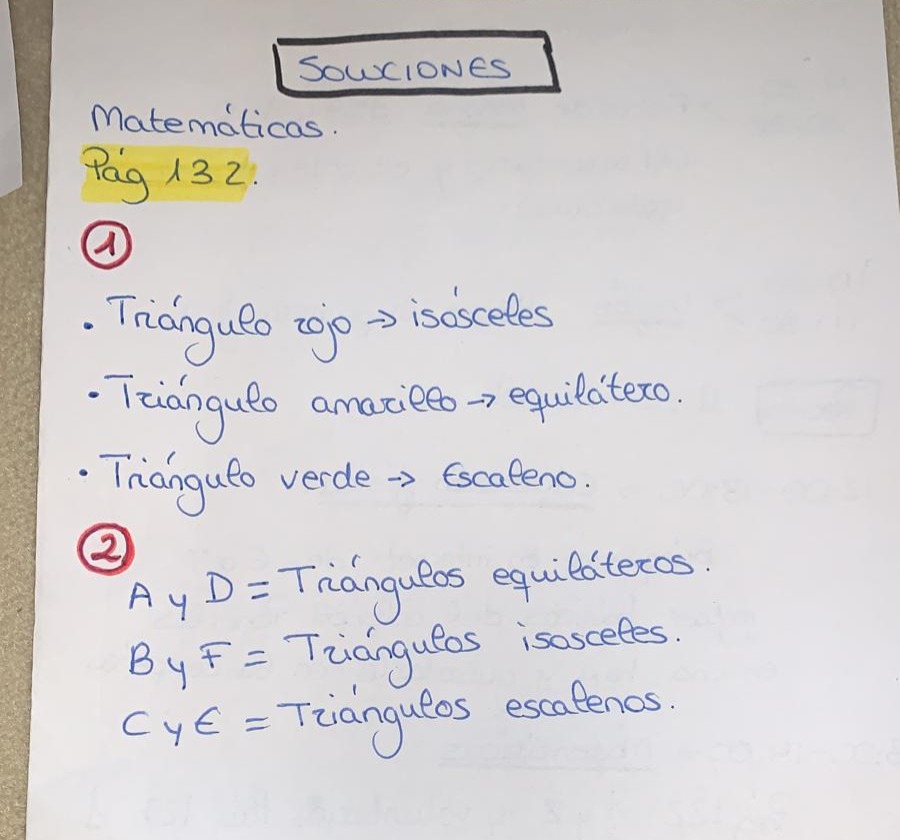 SOLUCIONES
Matemáticas.
Pág 132.
1
• Triángulo rojo → isósceles
• Triángulo amarillo → equilátero.
• Triángulo verde → Escaleno.
2
A y D = Triángulos equiláteros.
B y F = Triángulos isosceles.
C y E = Triángulos escalenos.